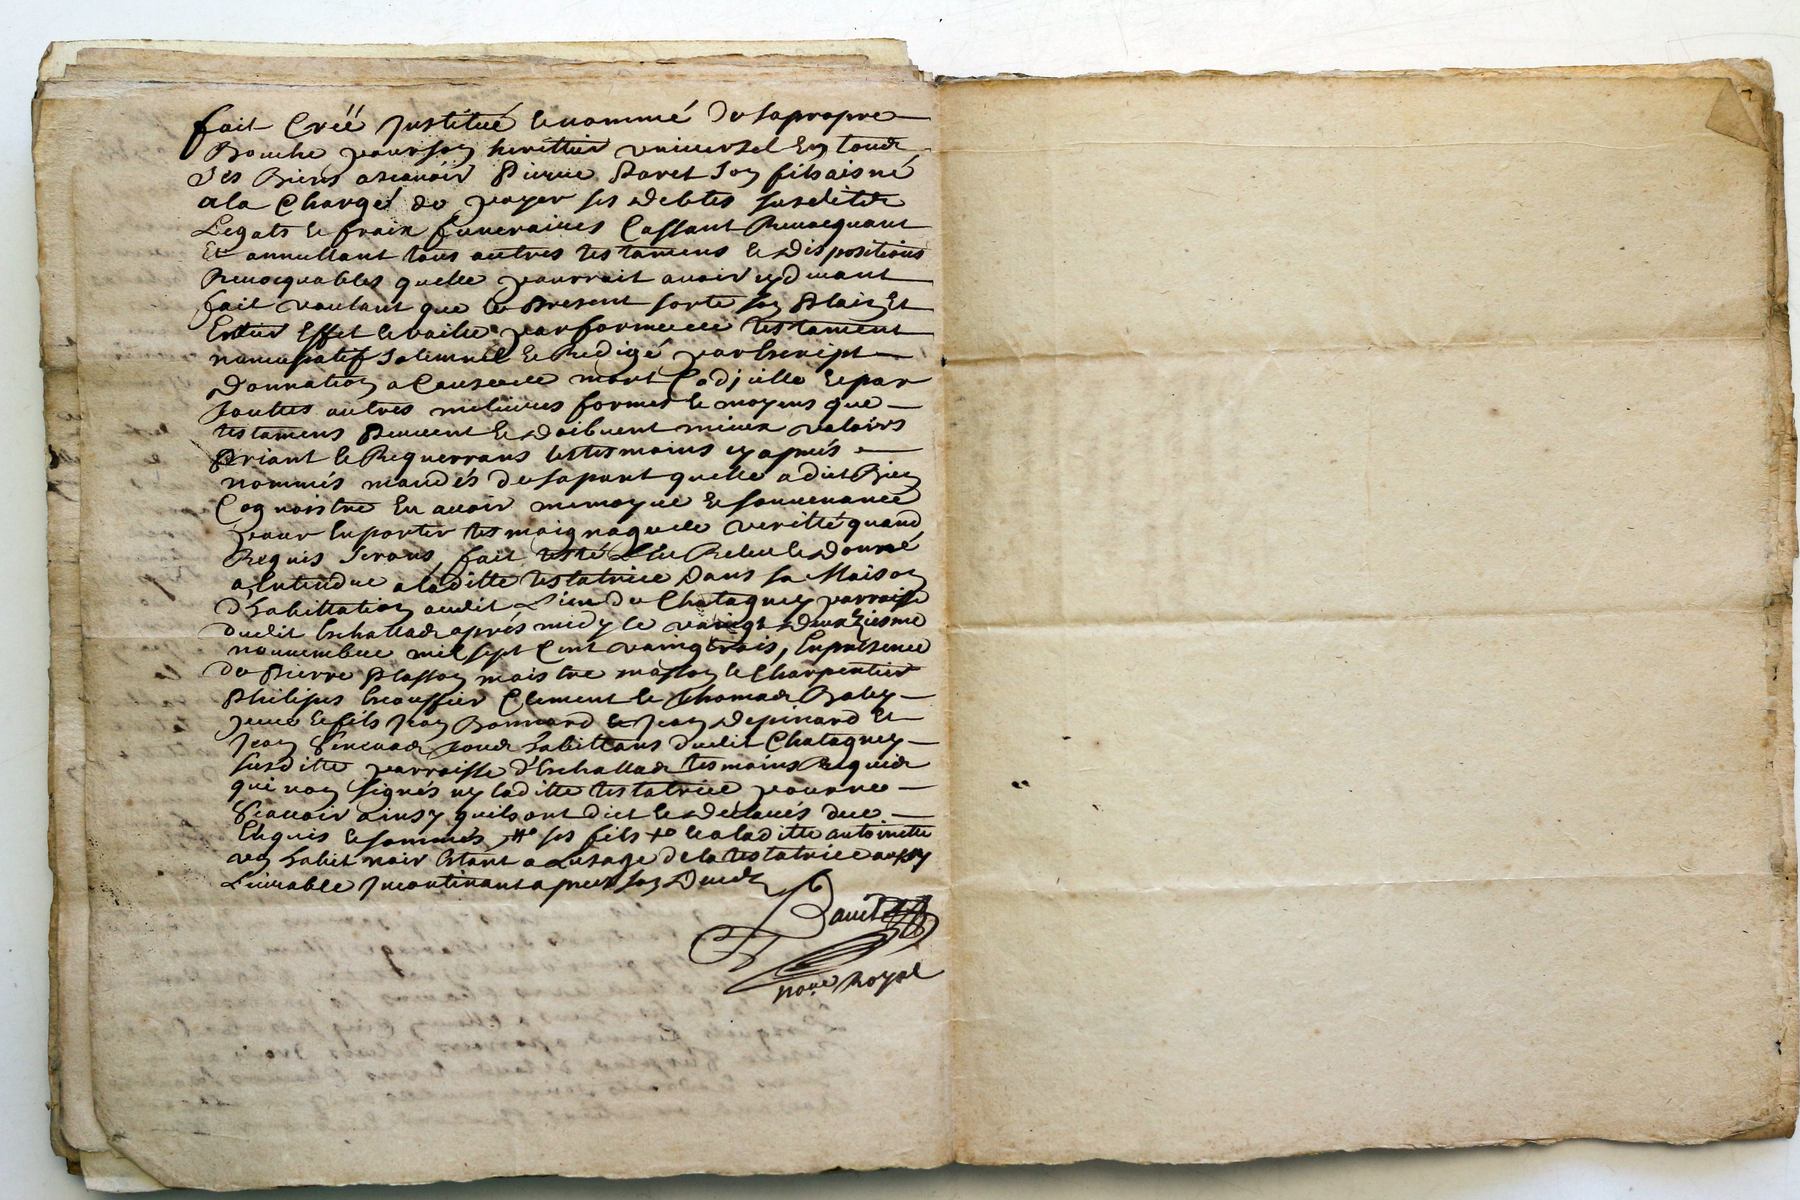 fait Créé justitué et nommé de sa propre
Bouche pour son herittier universel En tous
ses Biens ascavoir Pierre Paret son fils aisné
a la Charge de payer ses debtes susdits
Legats et fraix funeraires Cassant Revocquant
Et annullant tous autres testamens et dispositions
Revocquables quelle pourroit avoir cydevant
fait voulant que le present sorte son Plain Et
Entier Effet et vaille par forme de testament
nuncupatif solemnel et Redigé par Escript
Donnation a Cause de mort Codicille et par
toutes autres milieures formes et moyens que
testamens peuvent et doibvent mieux valoirs
Priant et Requerrans les tesmoins cy aprés
nommés mandés de sa part quelle a dit Bien
Cognoistre En avoir memoyre et souvenance
pour En porter tesmoignage de veritté quand
Requis Serons, fait testé Leu Releu et donné
a Entendue a laditte testatrice dans sa Maison
d'habittation audit Lieu de Chatagney parroisse
dudit Eschallas aprés midy le vaingt deuxziesme
novembre mil sept Cent vaingtrois, En presence
de Pierre Plasson maistre masson et Charpentier
Philipes Clement et Thomas Baley
pere et fils Jean Bonnard et Jean depinard Et
Jean tous habittans dudit Chatagney
susditte parroisse d'Eschallas tesmoins Requis
qui non signés ny laditte testatrice pour ne
Scavoir ainsy quils ont dict et declarés de ce
Enquis et sommés, ses fils et a laditte antoinette
un habit noir Estant a Lusage de la testatrice aussy
Livrable jncontinant apres son Deceds
no.re Royal